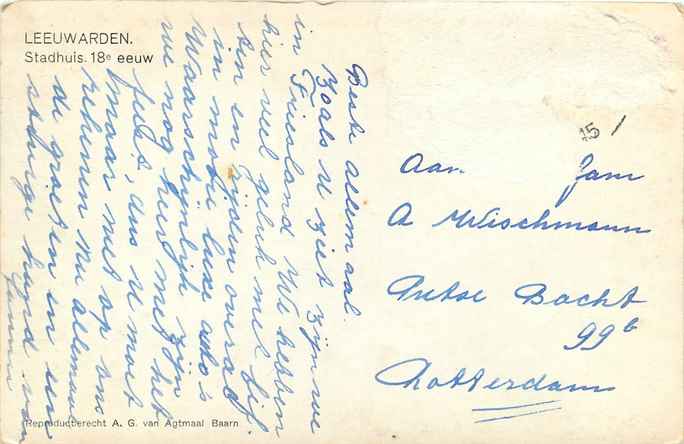 LEEUWARDEN.
Stadhuis. 18e eeuw
Beste allemaal.
Zoals U ziet zijn we
in Friesland We hebben
hier veel geluk met lif-
ten en rijden overal
in mooie luxe auto's
Waarschijnlijk zijn
we nog niet met het
feest, dus U moet
maar niet op ons
rekenen Nu allemaal
de groeten en een
stevige hand van
Reproductierecht A. G. van Agtmaal Baarn
15
Aan Fam
A Wischmann
Putse Bocht
99b
Rotterdam